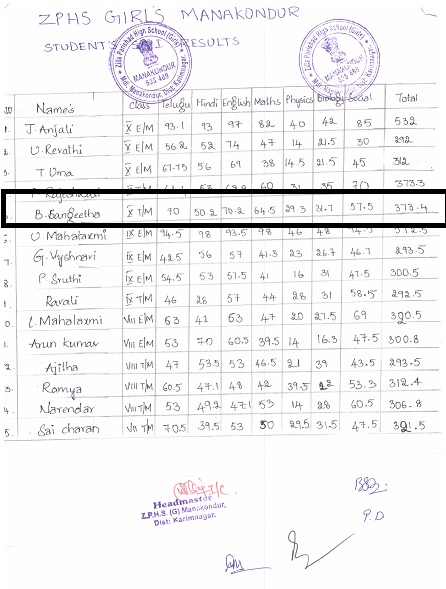 ZPHS GIRL'S MANAKONDUR
STUDENT'S RESULTS
Zilla Parishad High School (Girls)
MANAKONDUR
505 469
Name's Class Telugu Hindi English Maths Physics Biology Social Total
1. J. Anjali X E/M 93.1 93 97 82 40 42 85 532
U. Revathi X E/M 56.2 52 74 47 14 21.5 30 292
T. Uma X E/M 67.75 56 69 38 14.5 21.5 45 312
60 31 35 70 373.3
B. Sangeetha X T/M 70 50.2 70.2 64.5 29.3 31.7 57.5 373.4
U. Mahalaxmi IX E/M 94.5 98 93.5 98 46 48
7. G. Vyshnavi IX E/M 42.5 56 57 41.3 23 26.7 46.7 293.5
8. P. Sruthi IX E/M 54.5 53 57.5 41 16 31 47.5 300.5
Ravali IX T/M 46 28 57 44 28 31 58.5 292.5
0. L. Mahalaxmi VIII E/M 63 41 63 47 20 27.5 69 320.5
Arun kumar VIII E/M 53 70 60.5 39.5 14 16.3 47.5 300.8
2. Ajilha VIII T/M 47 53.5 53 46.5 21 39 43.5 293.5
3. Ramya VIII T/M 60.5 47.1 48 42 39.5 22 53.3 312.4
4. Narendar VIII T/M 53 49.2 47.1 53 14 28 60.5 306.8
5. Sai charan VII T/M 70.5 39.5 53 50 29.5 31.5 47.5 321.5
I/C
Headmaster
Z.P.H.S (G) Manakondur,
Dist: Karimnagar.
P.D